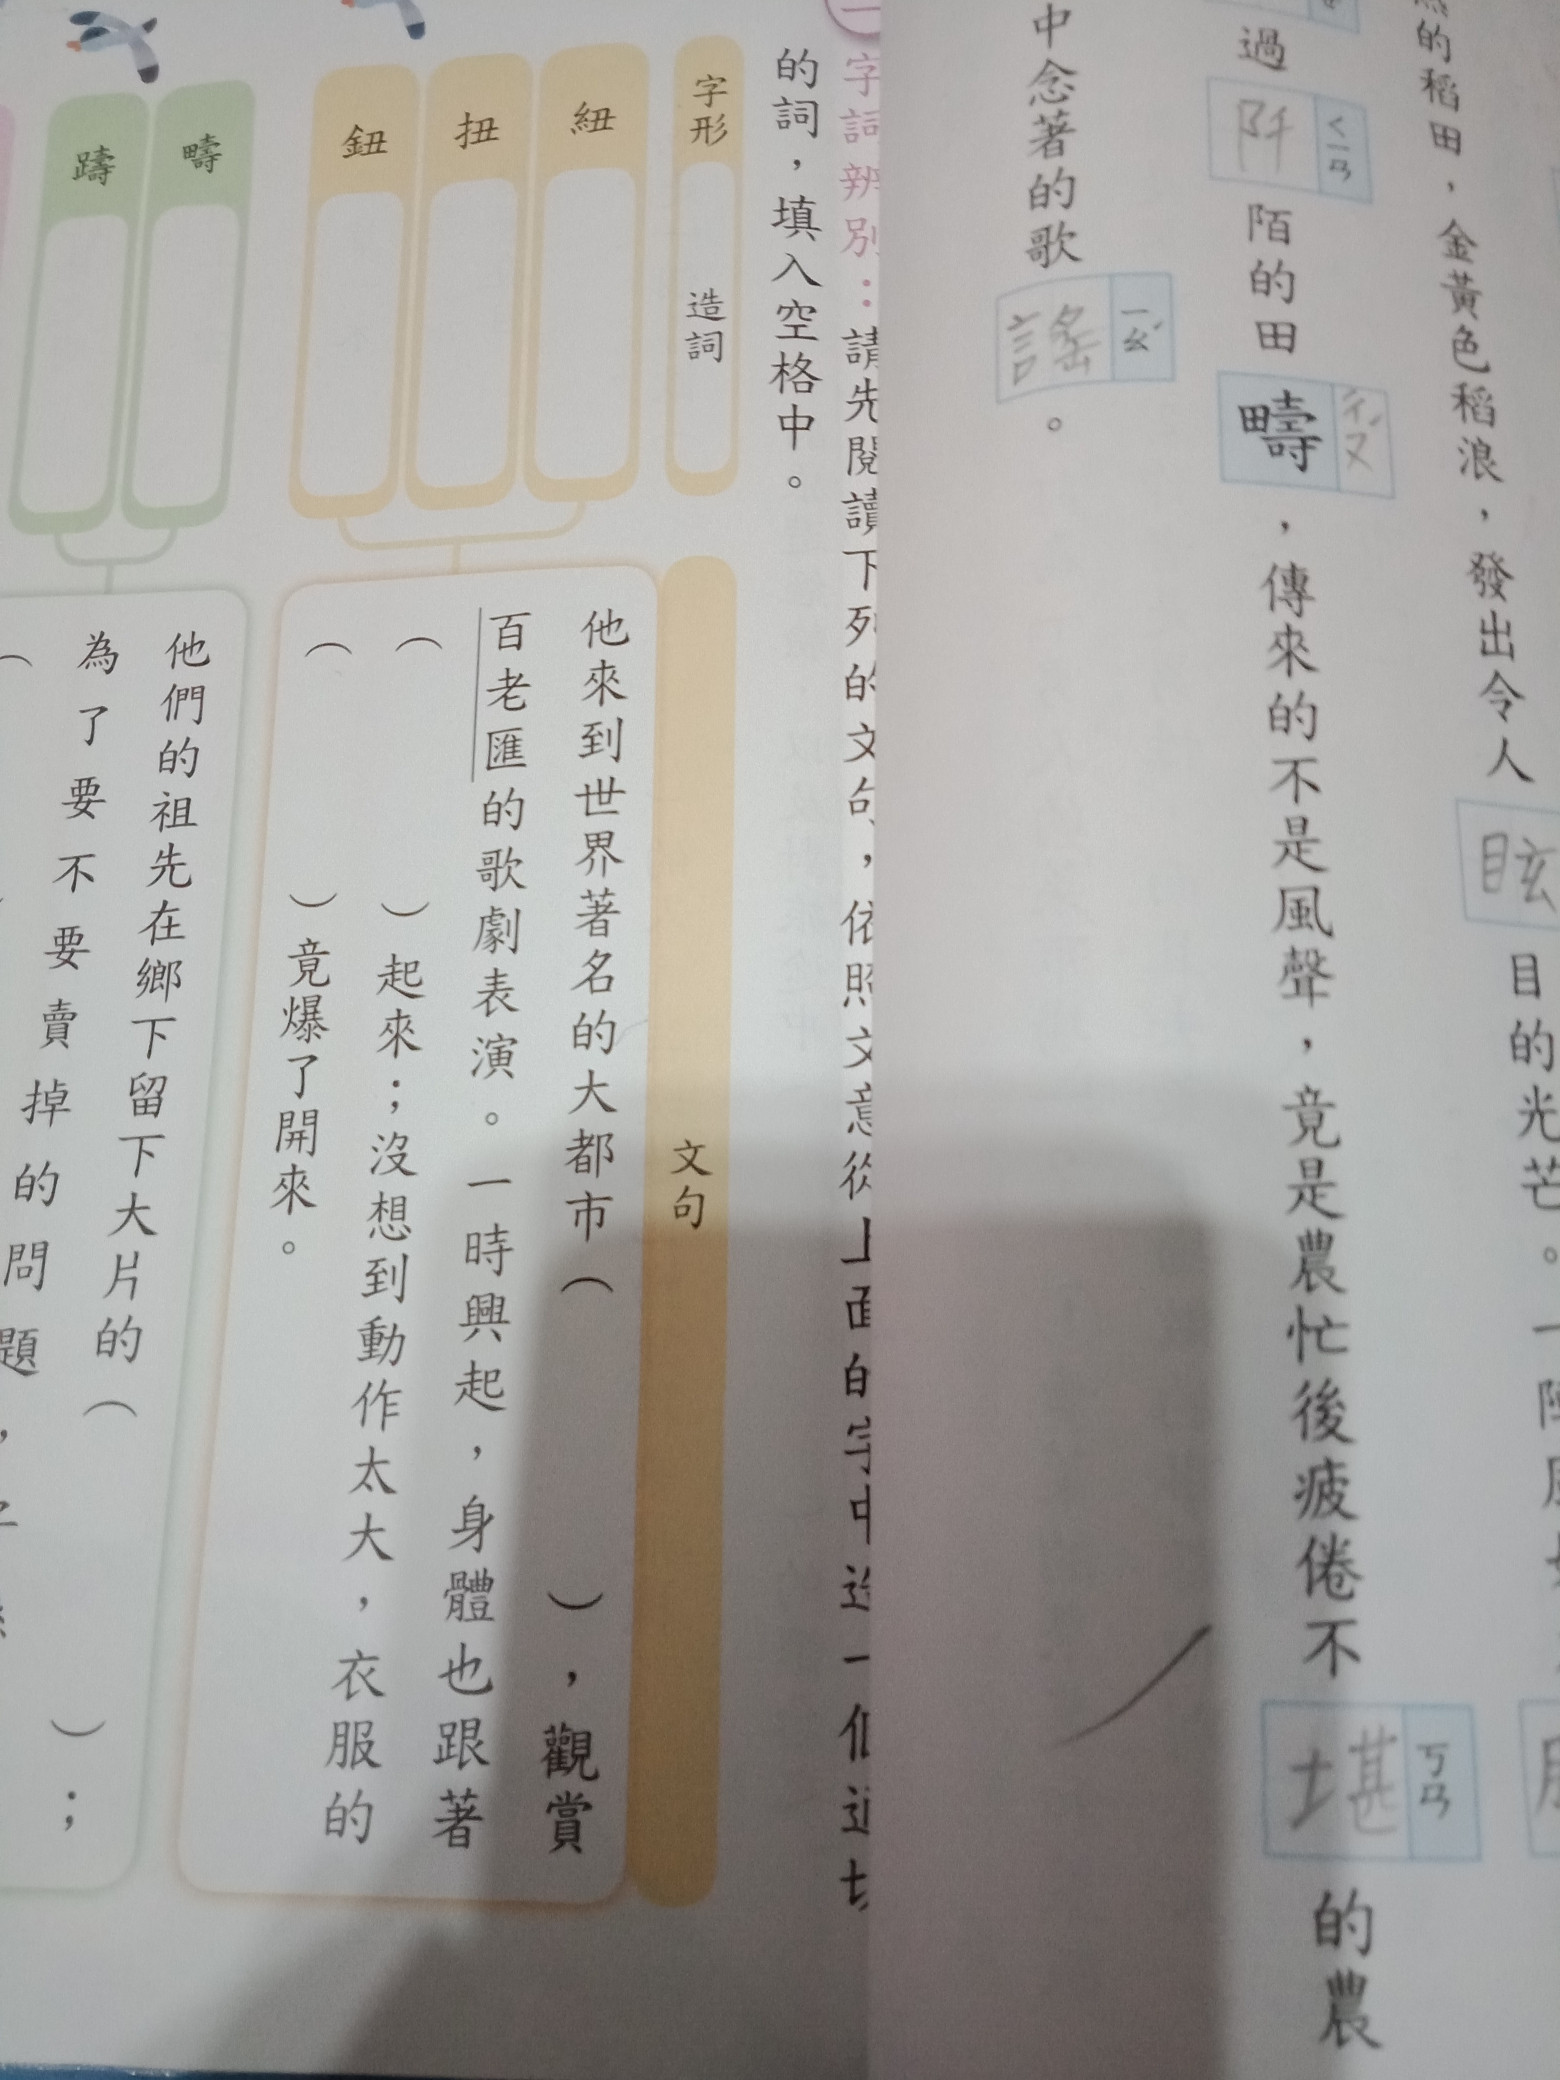 的稻田，金黃色稻浪，發出令人眩目的光芒。一陣
過阡ㄑㄧㄢ陌的田疇ㄔㄡˊ，傳來的不是風聲，竟是農忙後疲倦不堪ㄎㄢ的農
中念著的歌謠ㄧㄠˊ。
一
字詞辨別：請先閱讀下列的文句，依照文意從上面的字中造一個適切
的詞，填入空格中。
字形 造詞 文句
紐
扭
鈕
他來到世界著名的大都市（ ），觀賞
百老匯的歌劇表演。一時興起，身體也跟著
（ ）起來；沒想到動作太大，衣服的
（ ）竟爆了開來。
疇
躊
他們的祖先在鄉下留下大片的（ ）；
為了要不要賣掉的問題，
（